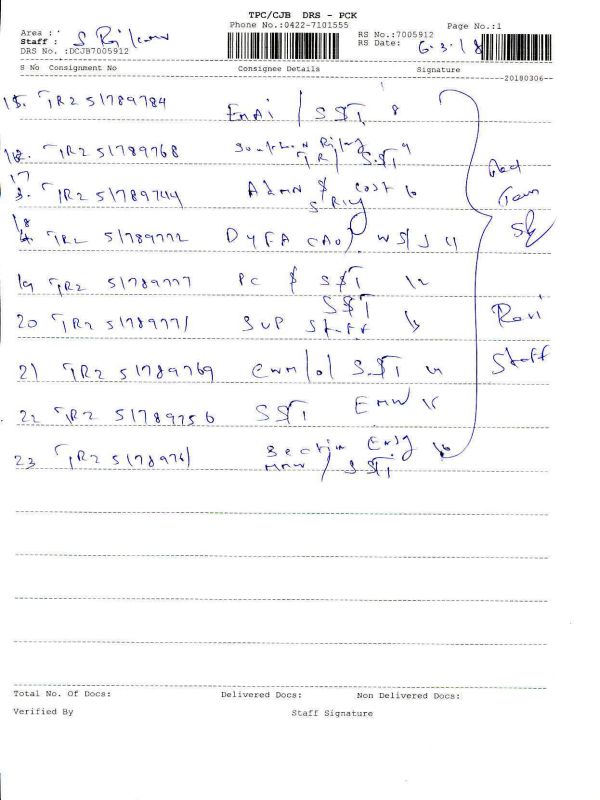 TPC/CJB DRS - PCK
Phone No.:0422-7101555
Page No.:1
Area :
Staff : S
RS No.:7005912
DRS No. :DCJB7005912
RS Date: 6.3.18
S No Consignment No Consignee Details Signature
20180306
15. TR2 51789784 / S$T, 8
16. TR2 51789768 S.$T 9
17 TR2 51789744 ADMN $ COST 10
18 TR2 51789772 DYFA CAO/ WS/S 11
19 TR2 51789777 PC $ S$T 12
S$T
20 TR2 51789771 SUP Staff 13
21 TR2 51789769 CWM/O/ S.$T 14
22 TR2 51789756 S$T EMW 15
23 TR2 51789761 Section Eng 16
MMW / S$T
Ravi
Staff
Total No. Of Docs: Delivered Docs: Non Delivered Docs:
Verified By Staff Signature